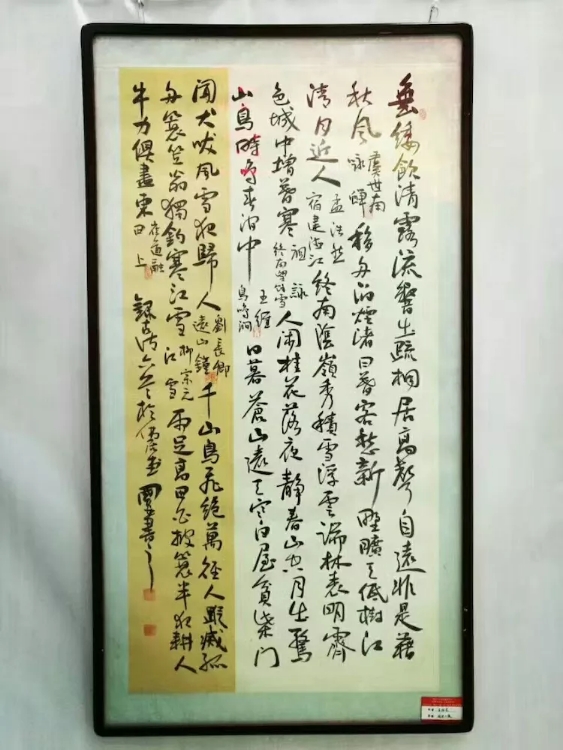 垂緌飲清露流響出疏桐居高聲自遠非是藉
秋風 虞世南 詠蟬 移舟泊煙渚日暮客愁新野曠天低樹江
清月近人 孟浩然 宿建德江 終南陰嶺秀積雪浮雲端林表明霽
色城中增暮寒 祖詠 終南望餘雪 人閑桂花落夜靜春山空月生驚
山鳥時鳴春澗中 王維 鳥鳴澗 日暮蒼山遠天寒白屋貧柴門
聞犬吠風雪夜歸人 劉長卿 千山鳥飛絕萬徑人蹤滅孤
舟簑笠翁獨釣寒江雪 柳宗元 江雪 雨足高田白披簑半夜耕人
牛力俱盡東日上 崔道融 錄古詩六首於